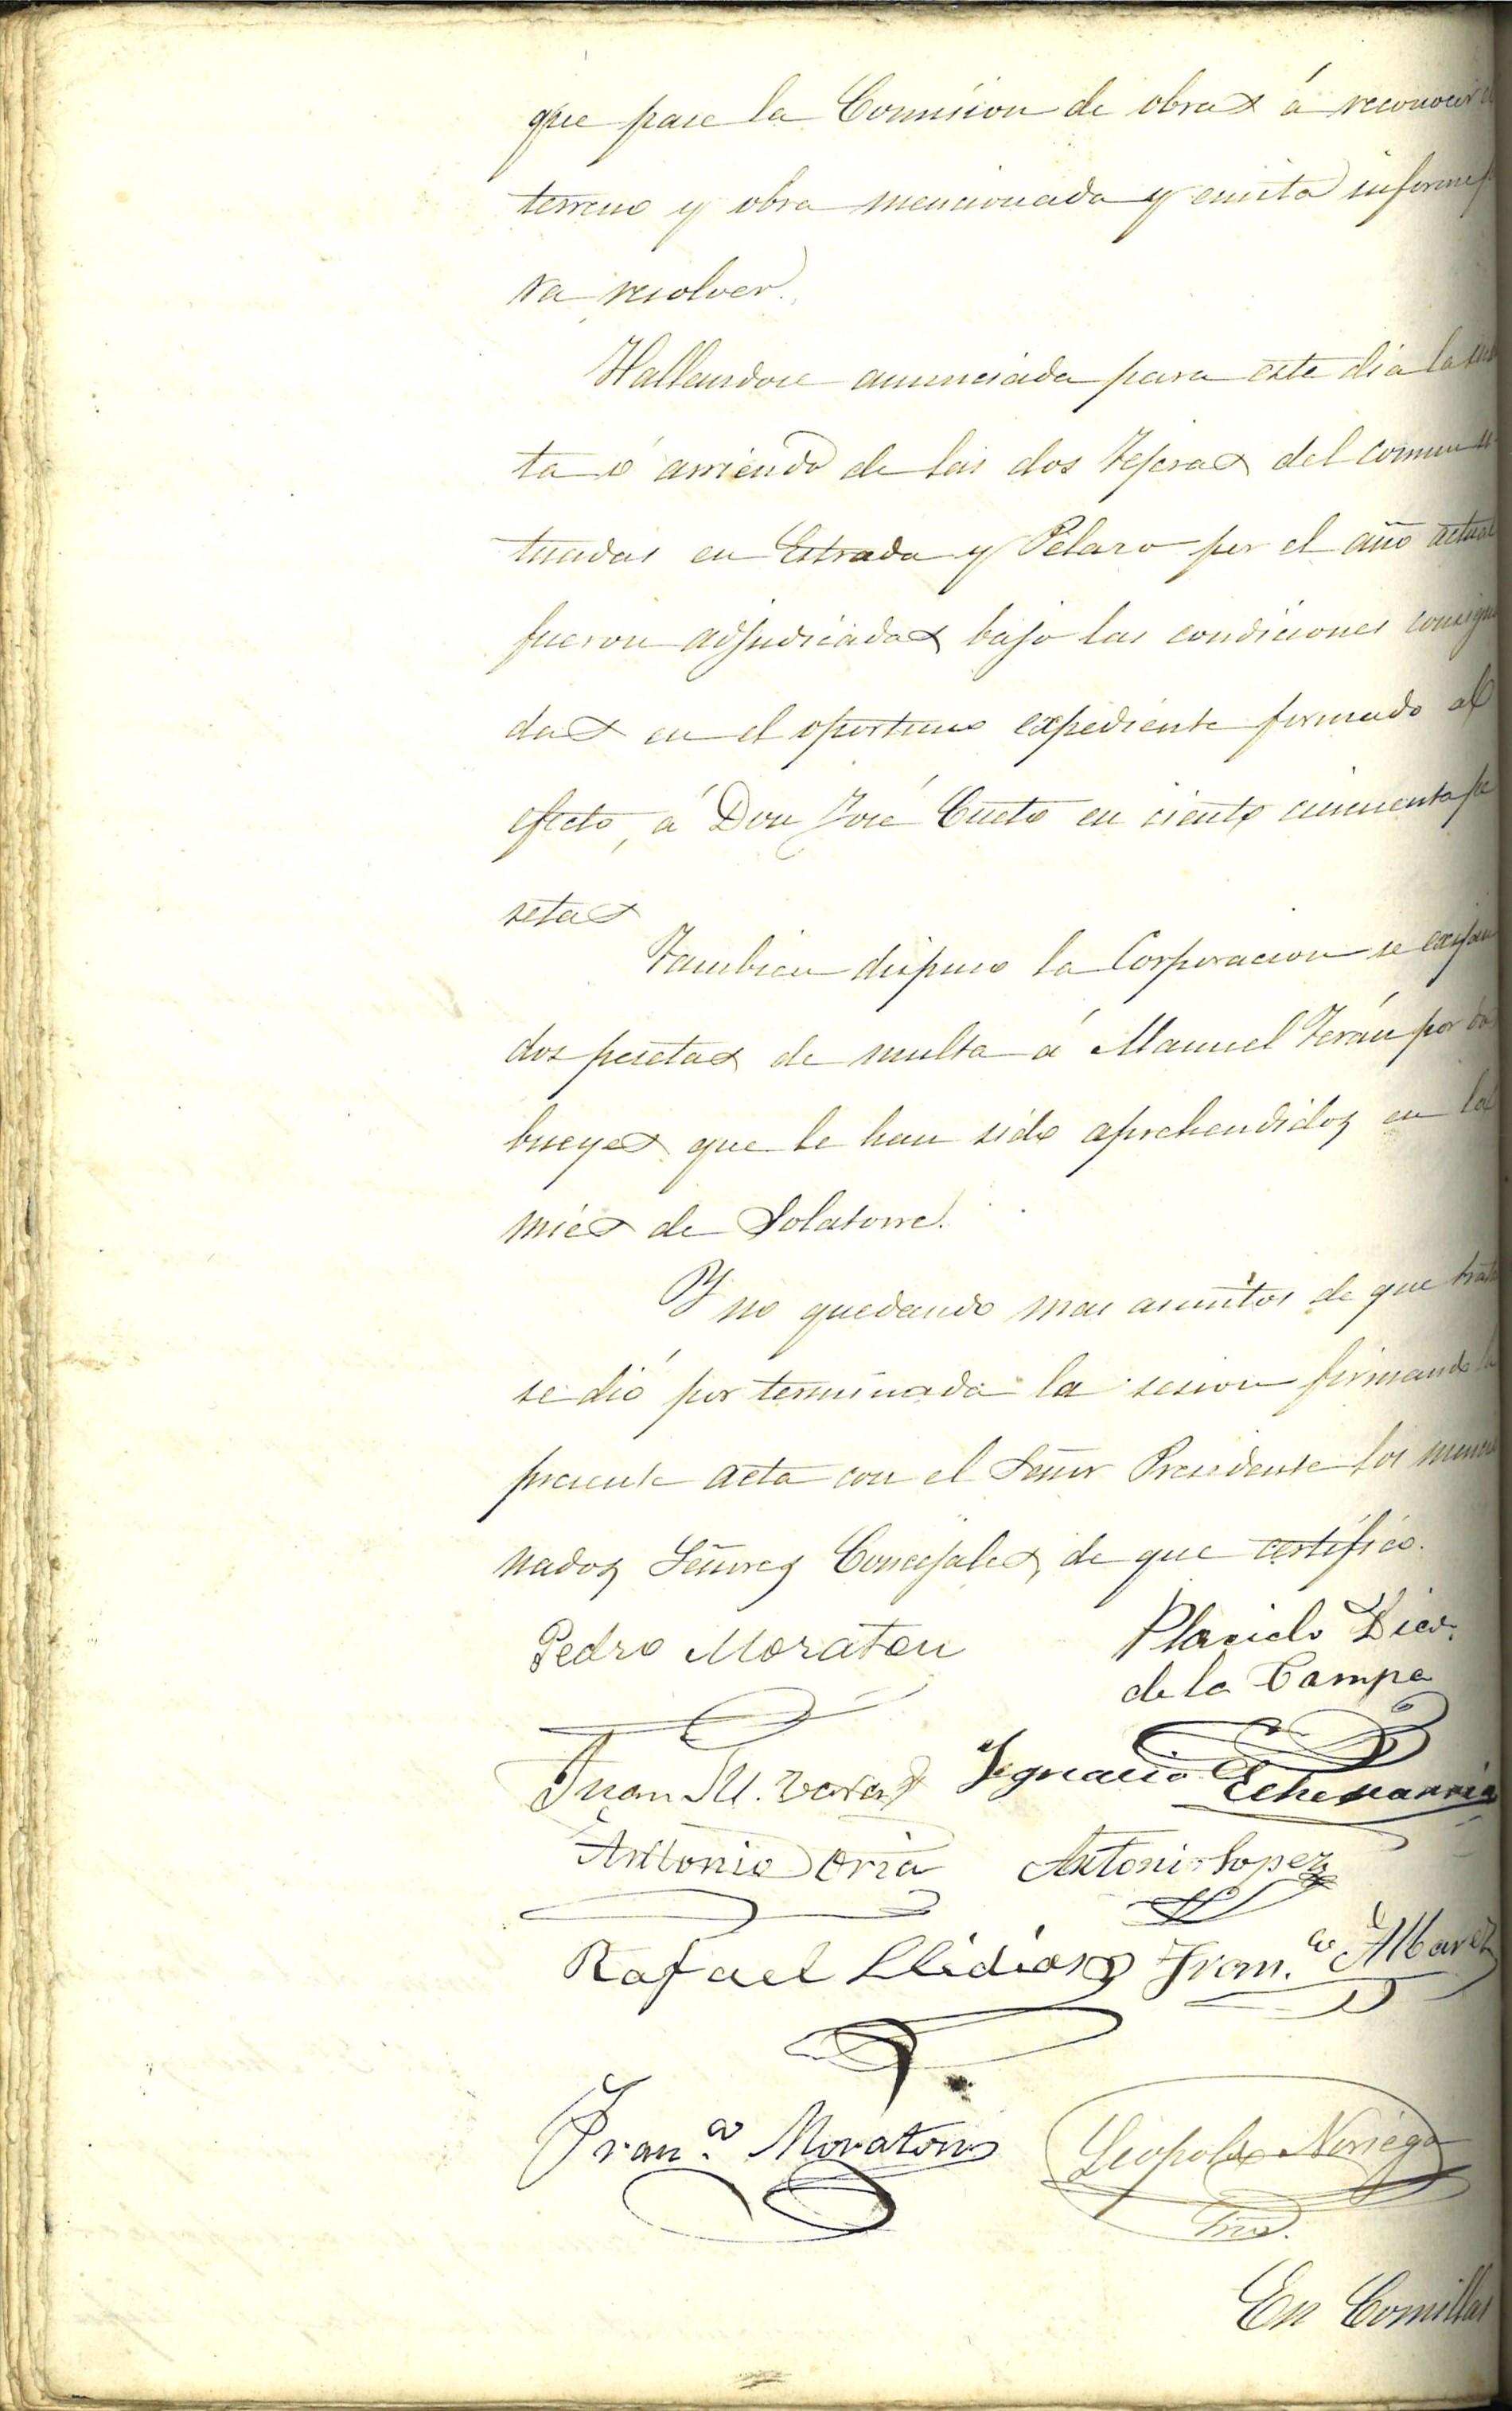 que pase la Comision de obras á reconocer
terreno y obra mencionada y emita informe
ra resolver.
Hallandose anunciada para este dia la
ta ó arriendo de las dos Tejeras del comun
tuadas en Estrada y Pelazo por el año actual
fueron adjudicadas bajo las condiciones consigna
das en el oportuno expediente formado al
efecto, á Don José Cueto en ciento cincuenta pe
setas
Tambien dispuso la Corporacion se exijan
dos pesetas de multa á Manuel Terán por
bueyes que le han sido aprehendidos en la
mies de Solatorre.
Y no quedando mas asuntos de que
se dió por terminada la sesion firmando la
presente acta con el Señor Presidente los mencio
nados Señores Concejales, de que certifico.
Pedro Moraton
Placido Diaz
de la Campa
Juan M.
Ignacio Echevarria
Antonio Oria
Antonio Lopez
Rafael
Fran.co
Fran.co Moraton
Leopoldo Noriega
Srio.
En Comillas